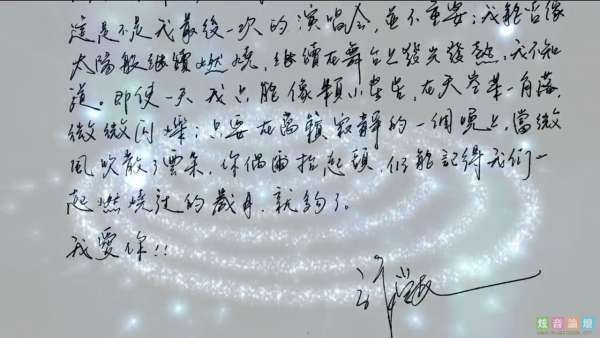 這是不是我最後一次的演唱会，並不重要；我能否像
太陽般继續燃燒，继續在舞台上發光發熱，我不知
道。即使一天我只能像顆小星星，在天空某一角落，
微微闪爍；只要在萬籟寂靜的一個晚上，當微
風吹散了雲朵，你偶爾抬起頭，仍能記得我们一
起燃燒过的歲月，就夠了。
我愛你!!
炫音論壇